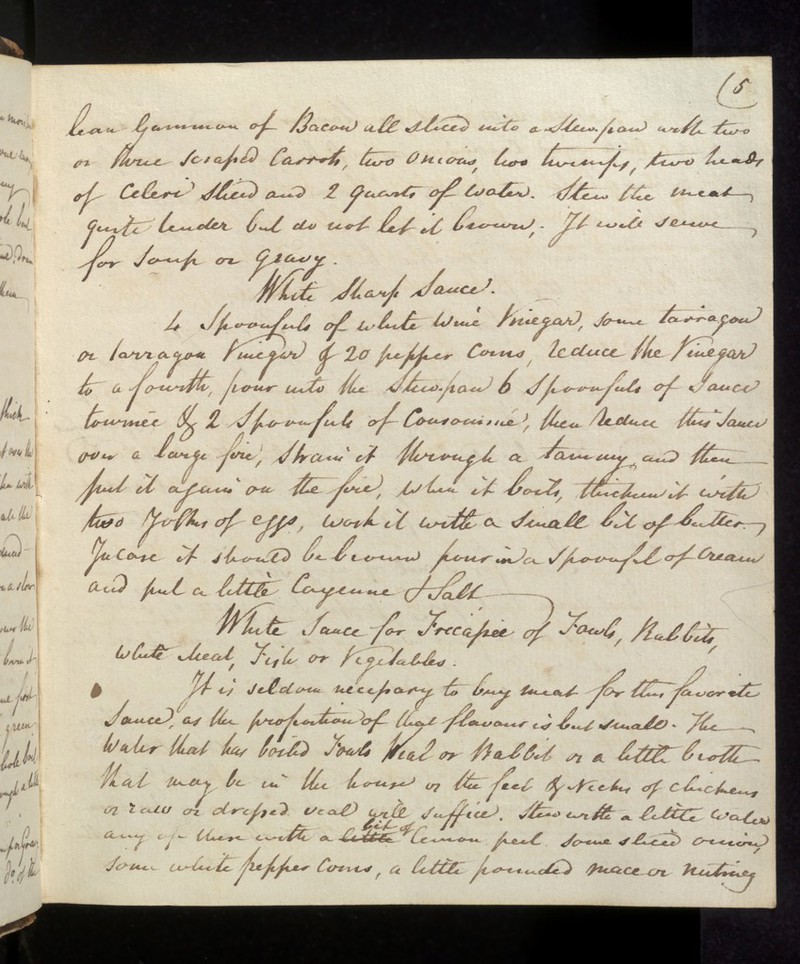 (5
lean Gammon of Bacon all sliced into a Stew.pan with two
or three scraped Carrots, two onions, two turnips, two heads
of Celeri sliced and 2 quarts of water. Stew the meat
quite tender but do not let it brown; It will serve
for Soup or gravy.
White Sharp Sauce.
4 Spoonfuls of white wine Vinegar, some tarragon
or tarragon Vinegar & 20 pepper corns, reduce the Vinegar
to a fourth, pour into the Stew.pan 6 Spoonfuls of Sauce
tournée & 2 Spoonfuls of Consommé, then reduce this Sauce
over a large fire, Strain it through a tammy and then
put it again on the fire, when it boils, thicken it with
two Yolks of eggs, work it with a small bit of butter.
Incase it should be brown pour in a spoonful of Cream
and put a little Cayenne & Salt
White Sauce for Friccasee of Fowls, Rabbits,
White Meat, Fish or Vegitables.
It is seldom necessary to buy meat for this favorite
Sauce, as the proportion of that flavour is but small. The
Water that has boiled Fowls Veal or Rabbit or a little broth
that may be in the house or the feet & Necks of chickens
or raw or dressed veal will suffice. Stew with a little water
any of these with a little bit of lemon peel some sliced onion,
some white pepper corns, a little pounded mace or nutmeg